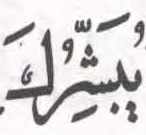 يُبَشِّرُكَ